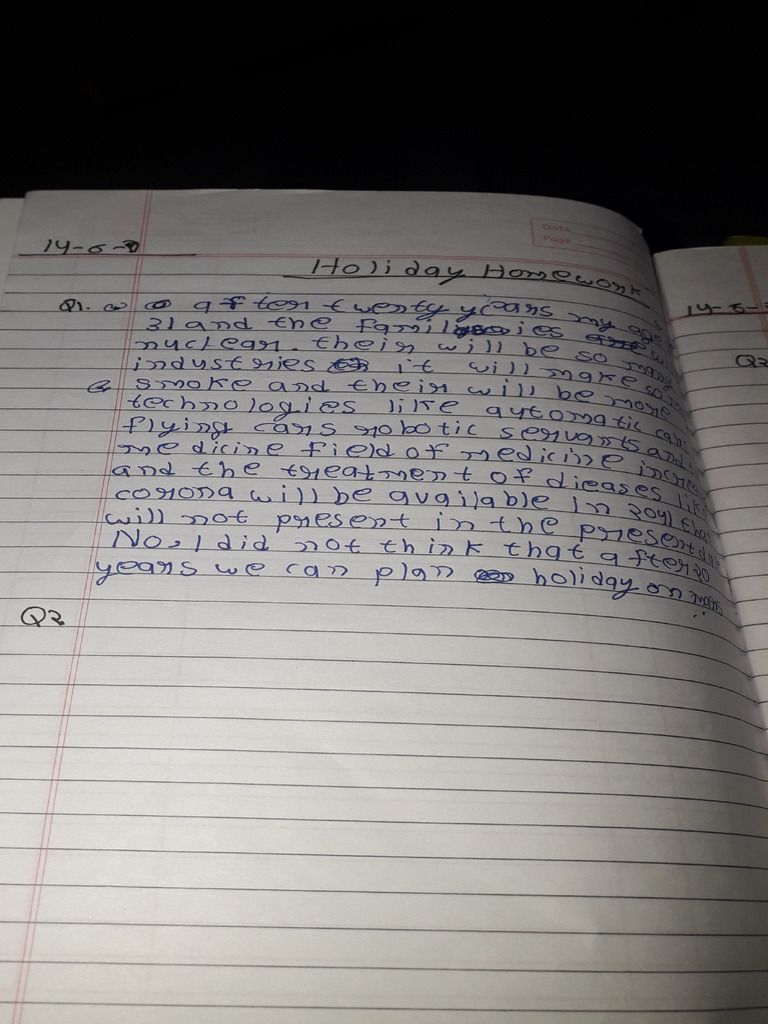 Date
Page
14-6-
Holiday Homework
Q1. after twenty years my age
31 and the families
nuclear. their will be so many
industries it will make so
smoke and their will be more
technologies like automatic car
flying cars robotic servants and
medicine field of medicine
and the treatment of dieases
corona will be available in 2041
will not present in the present
No, I did not think that after 20
years we can plan holiday on mars
Q2
14-6-
Q2